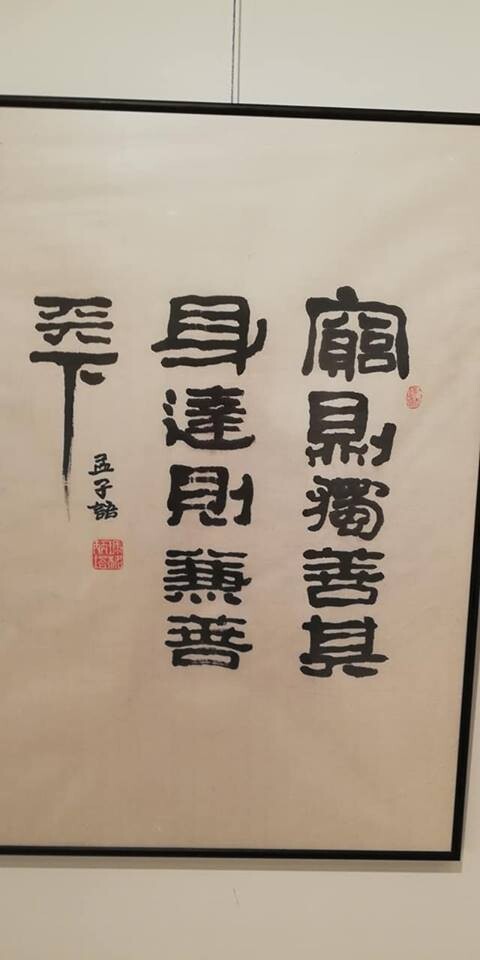 窮則獨善其
身達則兼善
天下
孟子語